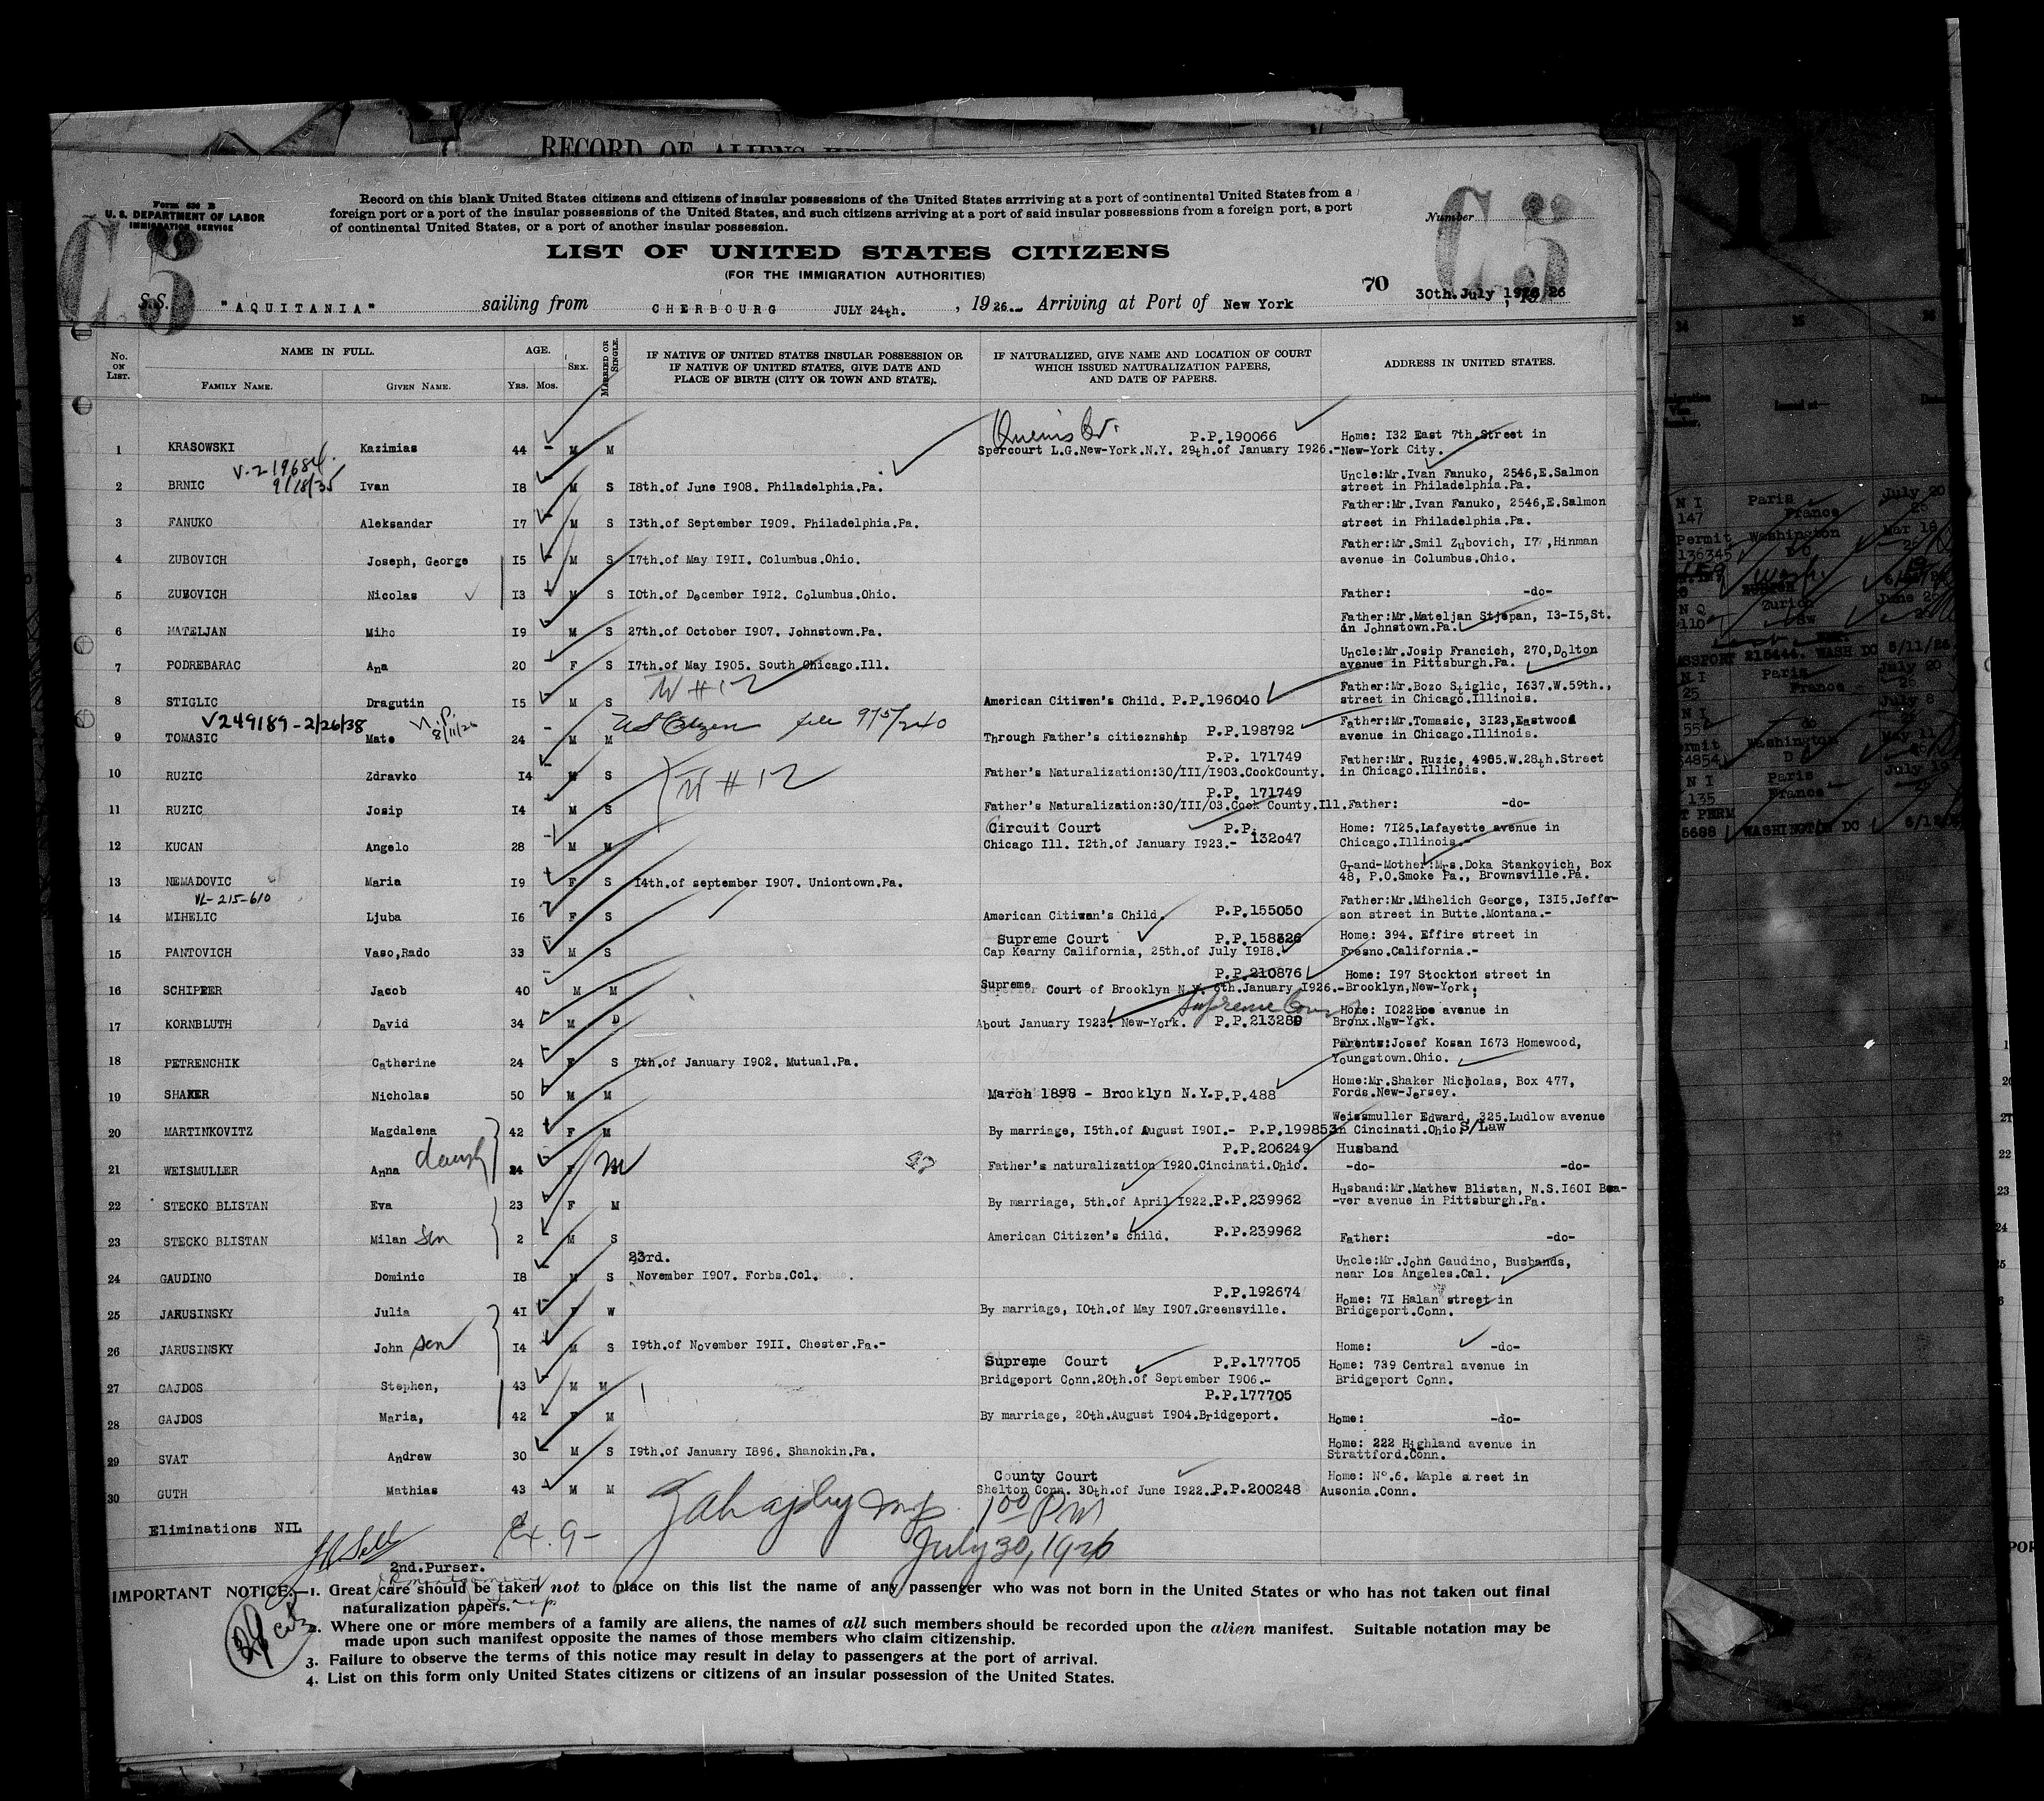 RECORD OF ALIENS
Form 630 B
U. S. DEPARTMENT OF LABOR
IMMIGRATION SERVICE
Record on this blank United States citizens and citizens of insular possessions of the United States arrriving at a port of continental United States from a
foreign port or a port of the insular possessions of the United States, and such citizens arriving at a port of said insular possessions from a foreign port, a port
of continental United States, or a port of another insular possession.
Number
C5
C5
LIST OF UNITED STATES CITIZENS
(FOR THE IMMIGRATION AUTHORITIES)
70
S.S. "AQUITANIA" sailing from CHERBOURG JULY 24th. , 1926 Arriving at Port of New York 30th.July 1926
No. ON LIST. NAME IN FULL. AGE. SEX. MARRIED OR SINGLE. IF NATIVE OF UNITED STATES INSULAR POSSESSION OR IF NATIVE OF UNITED STATES, GIVE DATE AND PLACE OF BIRTH (CITY OR TOWN AND STATE). IF NATURALIZED, GIVE NAME AND LOCATION OF COURT WHICH ISSUED NATURALIZATION PAPERS, AND DATE OF PAPERS. ADDRESS IN UNITED STATES.
FAMILY NAME. GIVEN NAME. Yrs. Mos.
P.P.190066 Home: I32 East 7th.Street in
1 KRASOWSKI Kazimias 44 - M M Spercourt L.G.New-York.N.Y. 29th.of January I926.- New-York City.
V-219684
9/18/35
Uncle:Mr.Ivan Fanuko, 2546,E.Salmon
2 BRNIC Ivan I8 M S I8th.of June I908. Philadelphia.Pa. street in Philadelphia.Pa.
Father:Mr.Ivan Fanuko, 2546,E.Salmon
3 FANUKO Aleksandar I7 M S I3th.of September I909. Philadelphia.Pa. street in Philadelphia.Pa.
Father:Mr.Smil Zubovich, I7 ,Hinman
4 ZUBOVICH Joseph, George I5 M S I7th.of May I9II. Columbus.Ohio. avenue in Columbus.Ohio.
5 ZUBOVICH Nicolas I3 M S I0th.of December I9I2. Columbus.Ohio. Father: -do-
Father:Mr.Mateljan Stjepan, I3-I5,St.
6 MATELJAN Miho I9 M S 27th.of October I907. Johnstown.Pa. in Johnstown.Pa.
Uncle:Mr.Josip Francich, 270,Dolton
7 PODREBARAC Ana 20 F S I7th.of May I905. South Chicago.Ill. avenue in Pittsburgh.Pa.
# 12
Father:Mr.Bozo Stiglic, I637.W.59th.,
8 STIGLIC Dragutin I5 M S American Citiwen's Child. P.P.196040 street in Chicago.Illinois.
V249189-2/26/38 8/11/26 US Citizen
P.P.198792 Father:Mr.Tomasic, 3I23,Eastwood
9 TOMASIC Mate 24 M M Through Father's citieznship avenue in Chicago.Illinois.
P.P. 171749 Father:Mr. Ruzic, 4985.W.28th.Street
10 RUZIC Zdravko I4 M S Father's Naturalization:30/III/I903.CookCounty. in Chicago.Illinois.
# 12
P.P. 171749
11 RUZIC Josip I4 M S Father's Naturalization:30/III/03.Cook County.Ill. Father: -do-
Circuit Court P.P. Home: 7I25.Lafayette avenue in
12 KUCAN Angelo 28 M M Chicago Ill. I2th.of January I923.- 132047 Chicago.Illinois.-
Grand-Mother:Mrs.Doka Stankovich, Box
13 NEMADOVIC Maria I9 F S I4th.of september I907. Uniontown.Pa. 48, P.O.Smoke Pa., Brownsville.Pa.
VL-215-610
P.P.155050 Father:Mr.Mihelich George, I3I5.Jeffe-
14 MIHELIC Ljuba I6 F S American Citiwan's Child. son street in Butte.Montana.-
Supreme Court P.P.158326 Home: 394. Effire street in
15 PANTOVICH Vaso,Rado 33 M S Cap Kearny California, 25th.of July I9I8. Fresno.California.-
P.P.210876 Home: I97 Stockton street in
16 SCHIPPER Jacob 40 M M Supreme Court of Brooklyn N.Y. 6th.January I926.- Brooklyn,New-York.
Supreme Court Home: I022Hoe avenue in
17 KORNBLUTH David 34 M D About January I923. New-York. P.P.213289 Bronx.New-York.
Parents:Josef Kosan I673 Homewood,
18 PETRENCHIK Catherine 24 F S 7th.of January I902. Mutual.Pa. Youngstown.Ohio.
Home:Mr.Shaker Nicholas, Box 477,
19 SHAKER Nicholas 50 M M March I898 - Brooklyn N.Y. P.P.488 Fords.New-Jersey.
Weissmuller Edward, 325.Ludlow avenue
20 MARTINKOVITZ Magdalena 42 F M By marriage, I5th.of August I90I.- P.P.199853 in Cincinati.Ohio S/Law
P.P.206249 Husband
21 WEISMULLER Anna daugh 24 F M Father's naturalization I920.Cincinati.Ohio. -do- -do-
Husband:Mr.Mathew Blistan, N.S.I60I Bea-
22 STECKO BLISTAN Eva 23 F M By marriage, 5th.of April I922. P.P.239962 -ver avenue in Pittsburgh.Pa.
23 STECKO BLISTAN Milan son 2 M S American Citizen's child. P.P.239962 Father: -do-
23rd. Uncle:Mr.John Gaudino, Busbands,
24 GAUDINO Dominic I8 M S November I907. Forbs.Col. near Los Angeles.Cal.
P.P.192674 Home: 7I Halan street in
25 JARUSINSKY Julia 4I F W By marriage, I0th.of May I907.Greensville. Bridgeport.Conn.
26 JARUSINSKY John son I4 M S I9th.of November I9II. Chester.Pa.- Home: -do-
Supreme Court P.P.177705 Home: 739 Central avenue in
27 GAJDOS Stephen, 43 M M Bridgeport Conn.20th.of September I906.- Bridgeport Conn.
P.P.177705
28 GAJDOS Maria, 42 F M By marriage, 20th.August I904.Bridgeport. Home: -do-
Home: 222 Highland avenue in
29 SVAT Andrew 30 M S I9th.of January I896. Shanokin.Pa. Strattford.Conn.
County Court Home: N°.6. Maple street in
30 GUTH Mathias 43 M M Shelton Conn. 30th.of June I922. P.P.200248 Ausonia.Conn.
Eliminations NIL
1 00 PM
July 30, 1926
2nd.Purser.
IMPORTANT NOTICE.—1. Great care should be taken not to place on this list the name of any passenger who was not born in the United States or who has not taken out final
naturalization papers.
2. Where one or more members of a family are aliens, the names of all such members should be recorded upon the alien manifest. Suitable notation may be
made upon such manifest opposite the names of those members who claim citizenship.
3. Failure to observe the terms of this notice may result in delay to passengers at the port of arrival.
4. List on this form only United States citizens or citizens of an insular possession of the United States.
11
34 35 36
Paris France July 20
147
Permit Washington Mar 18
136345
Zurich June 25
110 Sw
PASSPORT 215444. WASH DC 5/11/26
Paris France July 20
25
July 8
55 do
Washington May 11
54854 D
Paris France July 19
135
5688 WASHINGTON DC